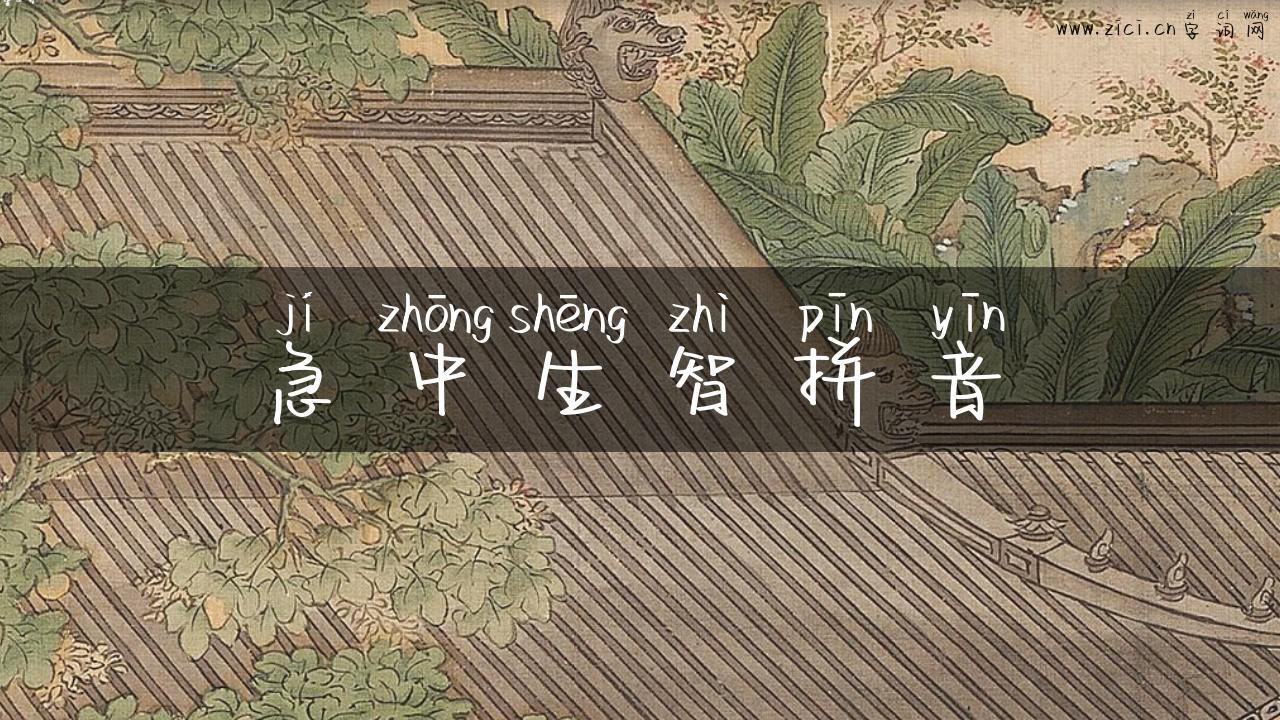 zì cí wǎng
www.zici.cn 字词网
jí zhōng shēng zhì pīn yīn
急中生智拼音